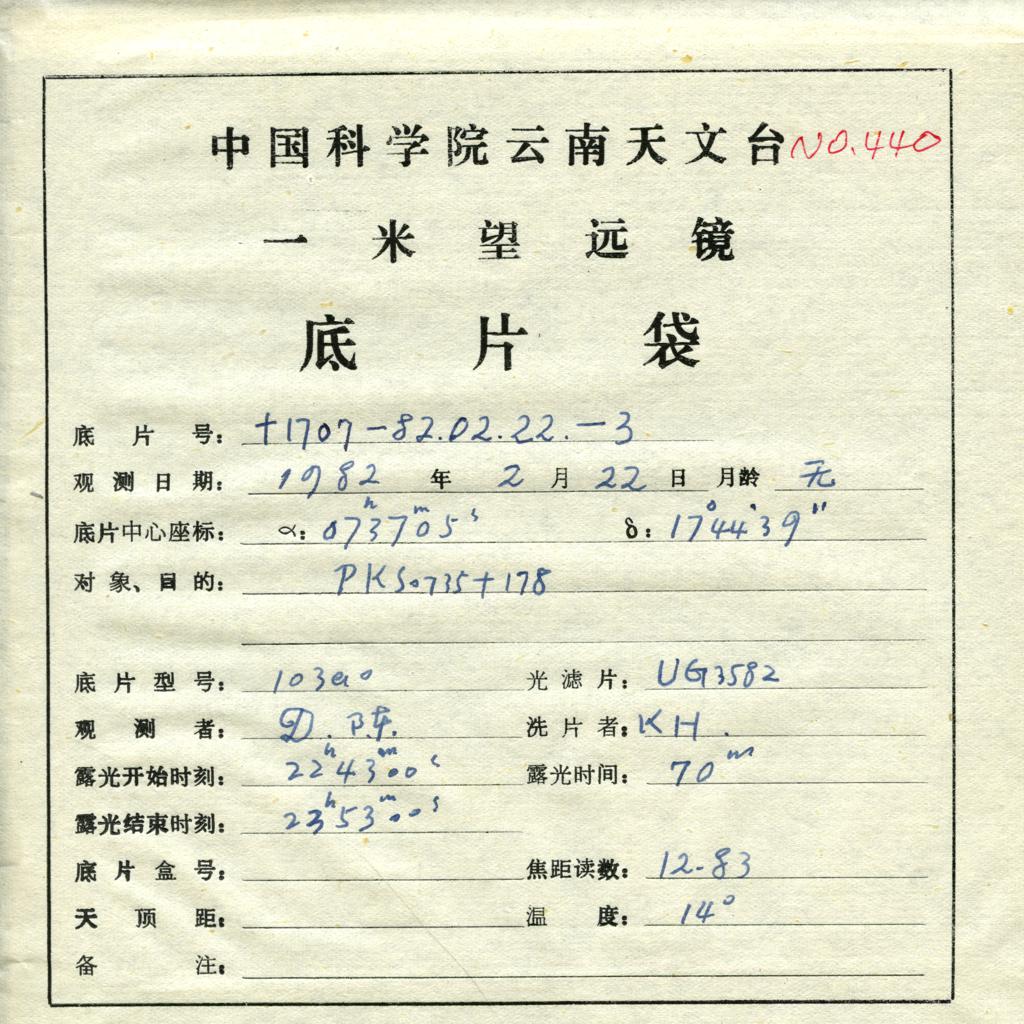 中国科学院云南天文台 NO.440
一米望远镜
底片袋
底片号: +1707-82.02.22.-3
观测日期: 1982 年 2 月 22 日 月龄 无
底片中心座标: α: 07h37m05s δ: 17°44'39"
对象、目的: PKS0735+178
底片型号: 103aO 光滤片: UG3582
观测者: D.陈. 洗片者: KH.
露光开始时刻: 22h43m00s 露光时间: 70m
露光结束时刻: 23h53m00s
底片盒号: 焦距读数: 12.83
天顶距: 温度: 14°
备注: